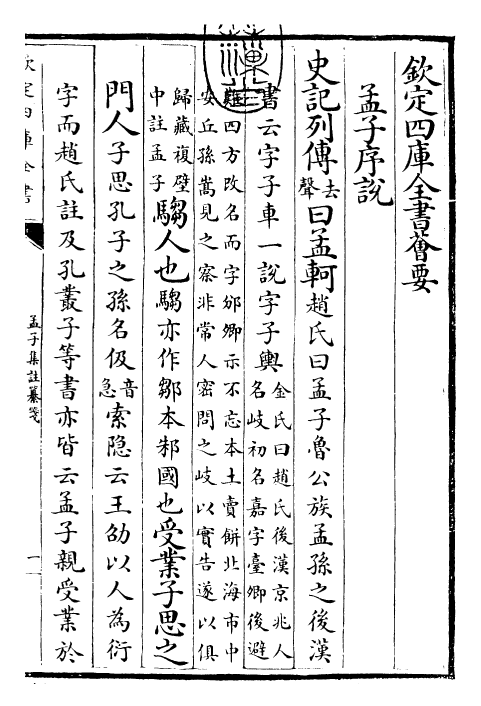 欽定四庫全書薈要
孟子序說
史記列傳去聲曰孟軻趙氏曰孟子魯公族孟孫之後漢
書云字子車一說字子輿金氏曰趙氏後漢京兆人名岐初名嘉字臺卿後避
難四方改名而字邠卿示不忘本土賣餅北海市中
安丘孫嵩見之察非常人密問之岐以實告遂以俱
歸藏複壁中註孟子騶人也騶亦作鄒本邾國也受業子思之
門人子思孔子之孫名伋音急索隐云王劭以人為衍
字而趙氏註及孔叢子等書亦皆云孟子親受業於
欽定四庫全書
孟子集註纂箋
一